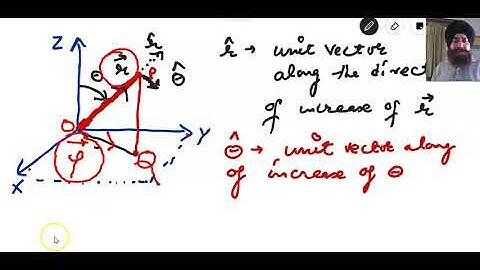 Z
r̂
θ
r⃗
P
θ̂
O
Y
φ
Q
X
r̂ → unit vector
along the direct
of increase of r⃗
θ̂ → unit vector along
of increase of θ